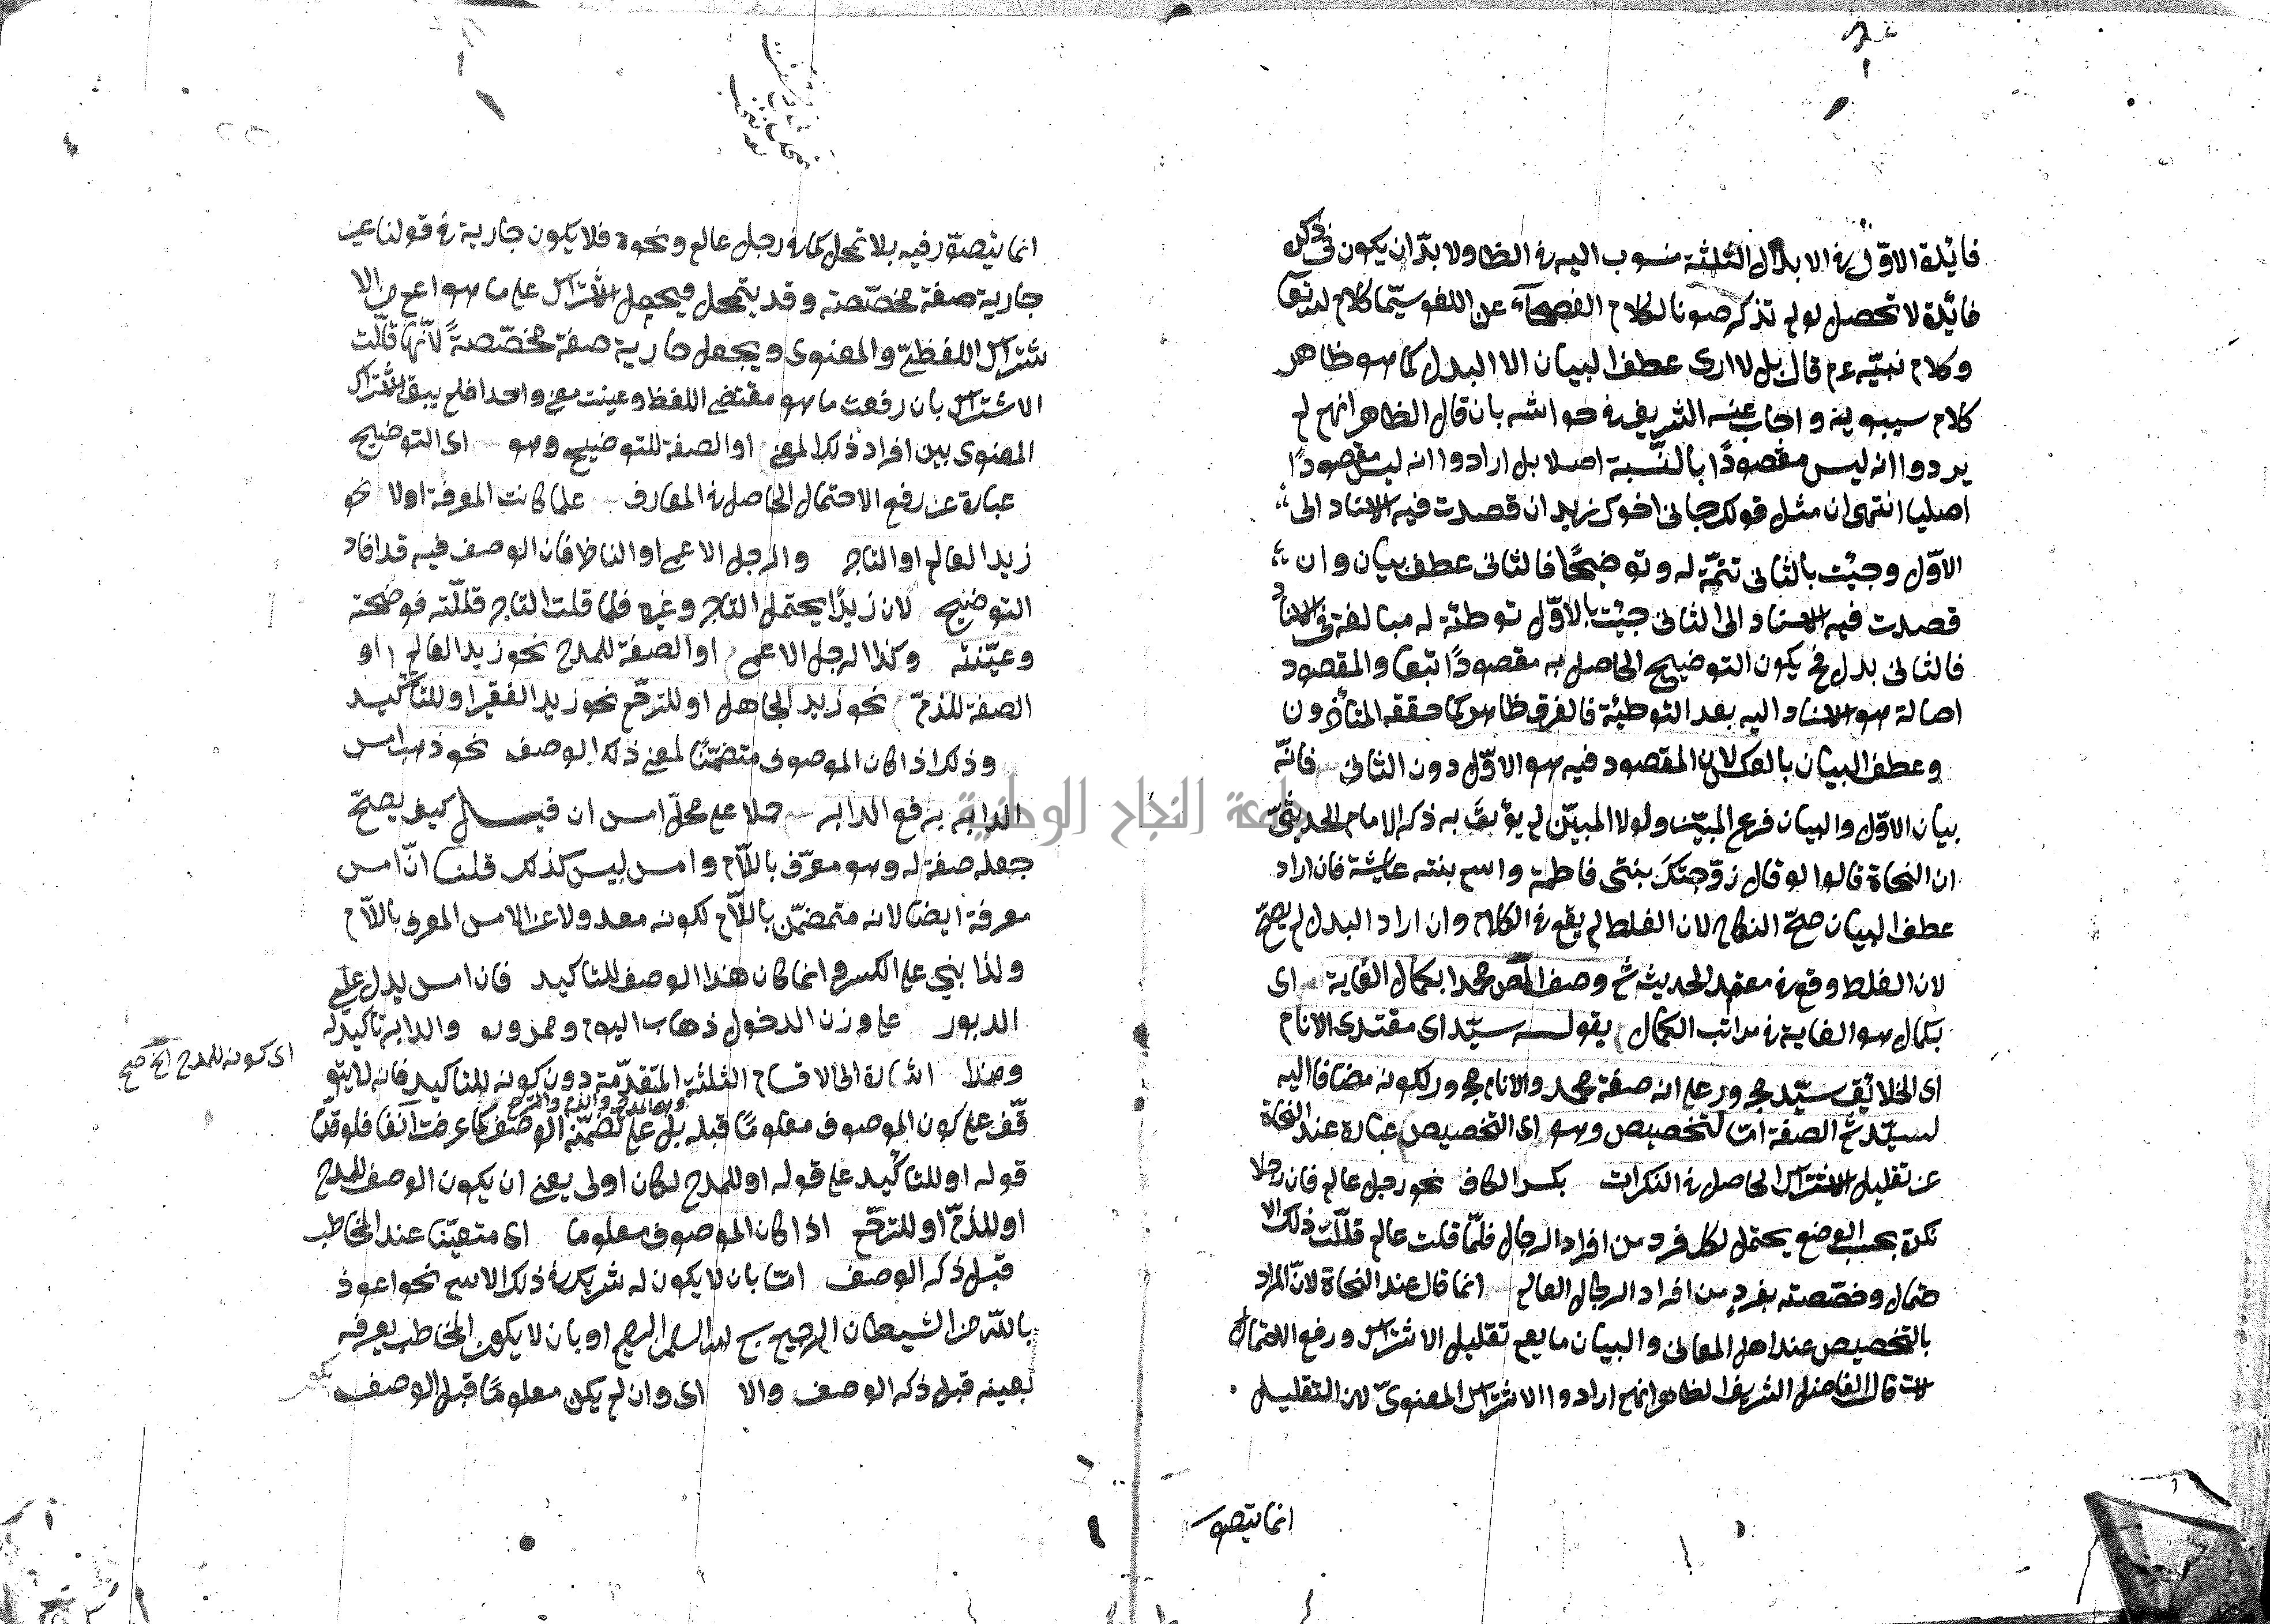 فائدة الاوّل فى الابدال الثلثة منسوب اليه فى الظا ولا بدّ ان يكون فى ذكره
فائدة لا تحصل لو لم تذكر صونا لكلام الفصحآء عن اللغو سيّما كلام الله تعا
وكلام نبيّه عم قال بل لا ارى عطف البيان الا البدل كما هو ظاهر
كلام سيبويه واجاب عنه الشريف فى حواشه بان قال الظاهر انهم لم
يردوا انه ليس مقصودًا بالنّسبة اصلا بل ارادوا انه ليس مقصودًا
اصليا انتهى ان مثل قولك جانى اخوك زيد ان قصدت فيه الاسناد الى
الاوّل وجيئت بالثانى تتمّة له وتوضيحًا فالثانى عطف بيان وان
قصدت فيه الاسناد الى الثانى جيئت بالاوّل توطئة له مبالغة فى الاسناد
فالثانى بدل فح يكون التوضيح الحاصل به مقصودًا تبعا والمقصود
اصالة هو الاسناد اليه بعد التوطيئة فالفرق ظاهر كما حققه المتأخرون
وعطف البيان بالعكس لان المقصود فيه هو الاوّل دون الثانى فانّه
بيان الاوّل والبيان فرع المبيّن ولولا المبيّن لم يؤت به ذكر الامام الحديثىّ
ان النحاة قالوا لو قال زوّجتكَ بنتى فاطمة واسم بنته عايشة فان اراد
عطف البيان صحّ النكاح لان الغلط لم يقع فى الكلام وان اراد البدل لم يصحّ
لان الغلط وقع فى معتمد الحديث ثم وصف المص محمدا بكمال الغاية اى
بكمال هو الغاية فى مراتب الكمال بقوله سيّد اى مقتدى الانام
اى الخلائق سيّد مجرور على انه صفة محمد والانام مجرور لكونه مضافا اليه
لسيّد ثم الصفة امّا لتخصيص وهو اى التخصيص عبارة عند النحاة
عن تقليل الاشتراك الحاصل فى النكرات بكسر الكاف نحو رجل عالم فان رجلا
نكرة بحسب الوضع يحتمل لكل فرد من افراد الرجال فلمّا قلت عالم قلّلت ذلك الا
حتمال وخصّصته بفردٍ من افراد الرجال العالم انما قال عند النحاة لانّ المراد
بالتخصيص عند اهل المعانى والبيان ما يعم تقليل الاشتراك ورفع الاحتمال
قال الفاضل الشريف الظاهر انهم ارادوا الاشتراك المعنوىّ لان التقليل
انما يتصور
انما يتصوّر فيه بلا تمحل كما فى رجل عالم ونحوه فلا يكون جارية فى قولنا عين
جارية صفة مخصّصة وقد يتمحل فيحمل الاشتراك على ما هو اعم من الا
شتراك اللفظىّ والمعنوى ويجعل جارية صفة مخصّصةً لانّها قلّلت
الاشتراك بان رفعت ما هو مقتضى اللفظ وعينت معنى واحدا فلم يبق الاشتراك
المعنوى بين افراد ذلك المعنى او الصفة للتوضيح وهو اى التوضيح
عبارة عن رفع الاحتمال الحاصل فى المعارف علما كانت المعرفة اولا نحو
زيد العالم او التاجر والرجل الاعمى او الناظر فان الوصف فيه قد افاد
التوضيح لان زيدًا يحتمل التاجر وغيره فلما قلت التاجر قلّلته فوضحته
وعيّنته وكذا الرجل الاعمى او الصفة للمدح نحو زيد العالم او
الصفة للذمّ نحو زيد الجاهل او للترحّم نحو زيد الفقير او للتأكيد
وذلك اذا كان الموصوف متضمّنًا لمعنى ذلك الوصف نحو ذهب امس
الدابر برفع الدابر حملا على محلّ امس ان قيل كيف يصحّ
جعله صفة له وهو معرّف باللّام وامس ليس كذلك قلنا انّ امس
معرفة ايضا لانه متضمّن باللّام لكونه معدولا عن الامس المعرف باللّام
ولذا بنى على الكسر وانما كان هذا الوصف للتاكيد فان امس يدل على
الدبور على وزن الدخول ذهاب اليوم ومروره والدابر تاكيد له
وهذا اشارة الى الاقسام الثلثة المتقدّمة دون كونه للتاكيد فانه لا يتو
وهو المدح والذم والترحم
قّف على كون الموصوف معلومًا قبله بل على تضمّنه الوصف كما عرفت آنفا فلو قدّم
قوله او للتاكيد على قوله او للمدح لكان اولى يعنى ان يكون الوصف للمدح
او للذمّ او للترحّم اذا كان الموصوف معلوما اى متعيّنا عند المخاطب
قبل ذكر الوصف امّا بان لا يكون له شريك فى ذلك الاسم نحو اعوذ
بالله من الشيطان الرجيم بسم الله الرحمن الرحيم او بان لا يكون المخاطب يعرفه
بعينه قبل ذكر الوصف والا اى وان لم يكن معلومًا قبل الوصف
اى كونه للمدح الخ صح
مطبعة النجاح الوطنية